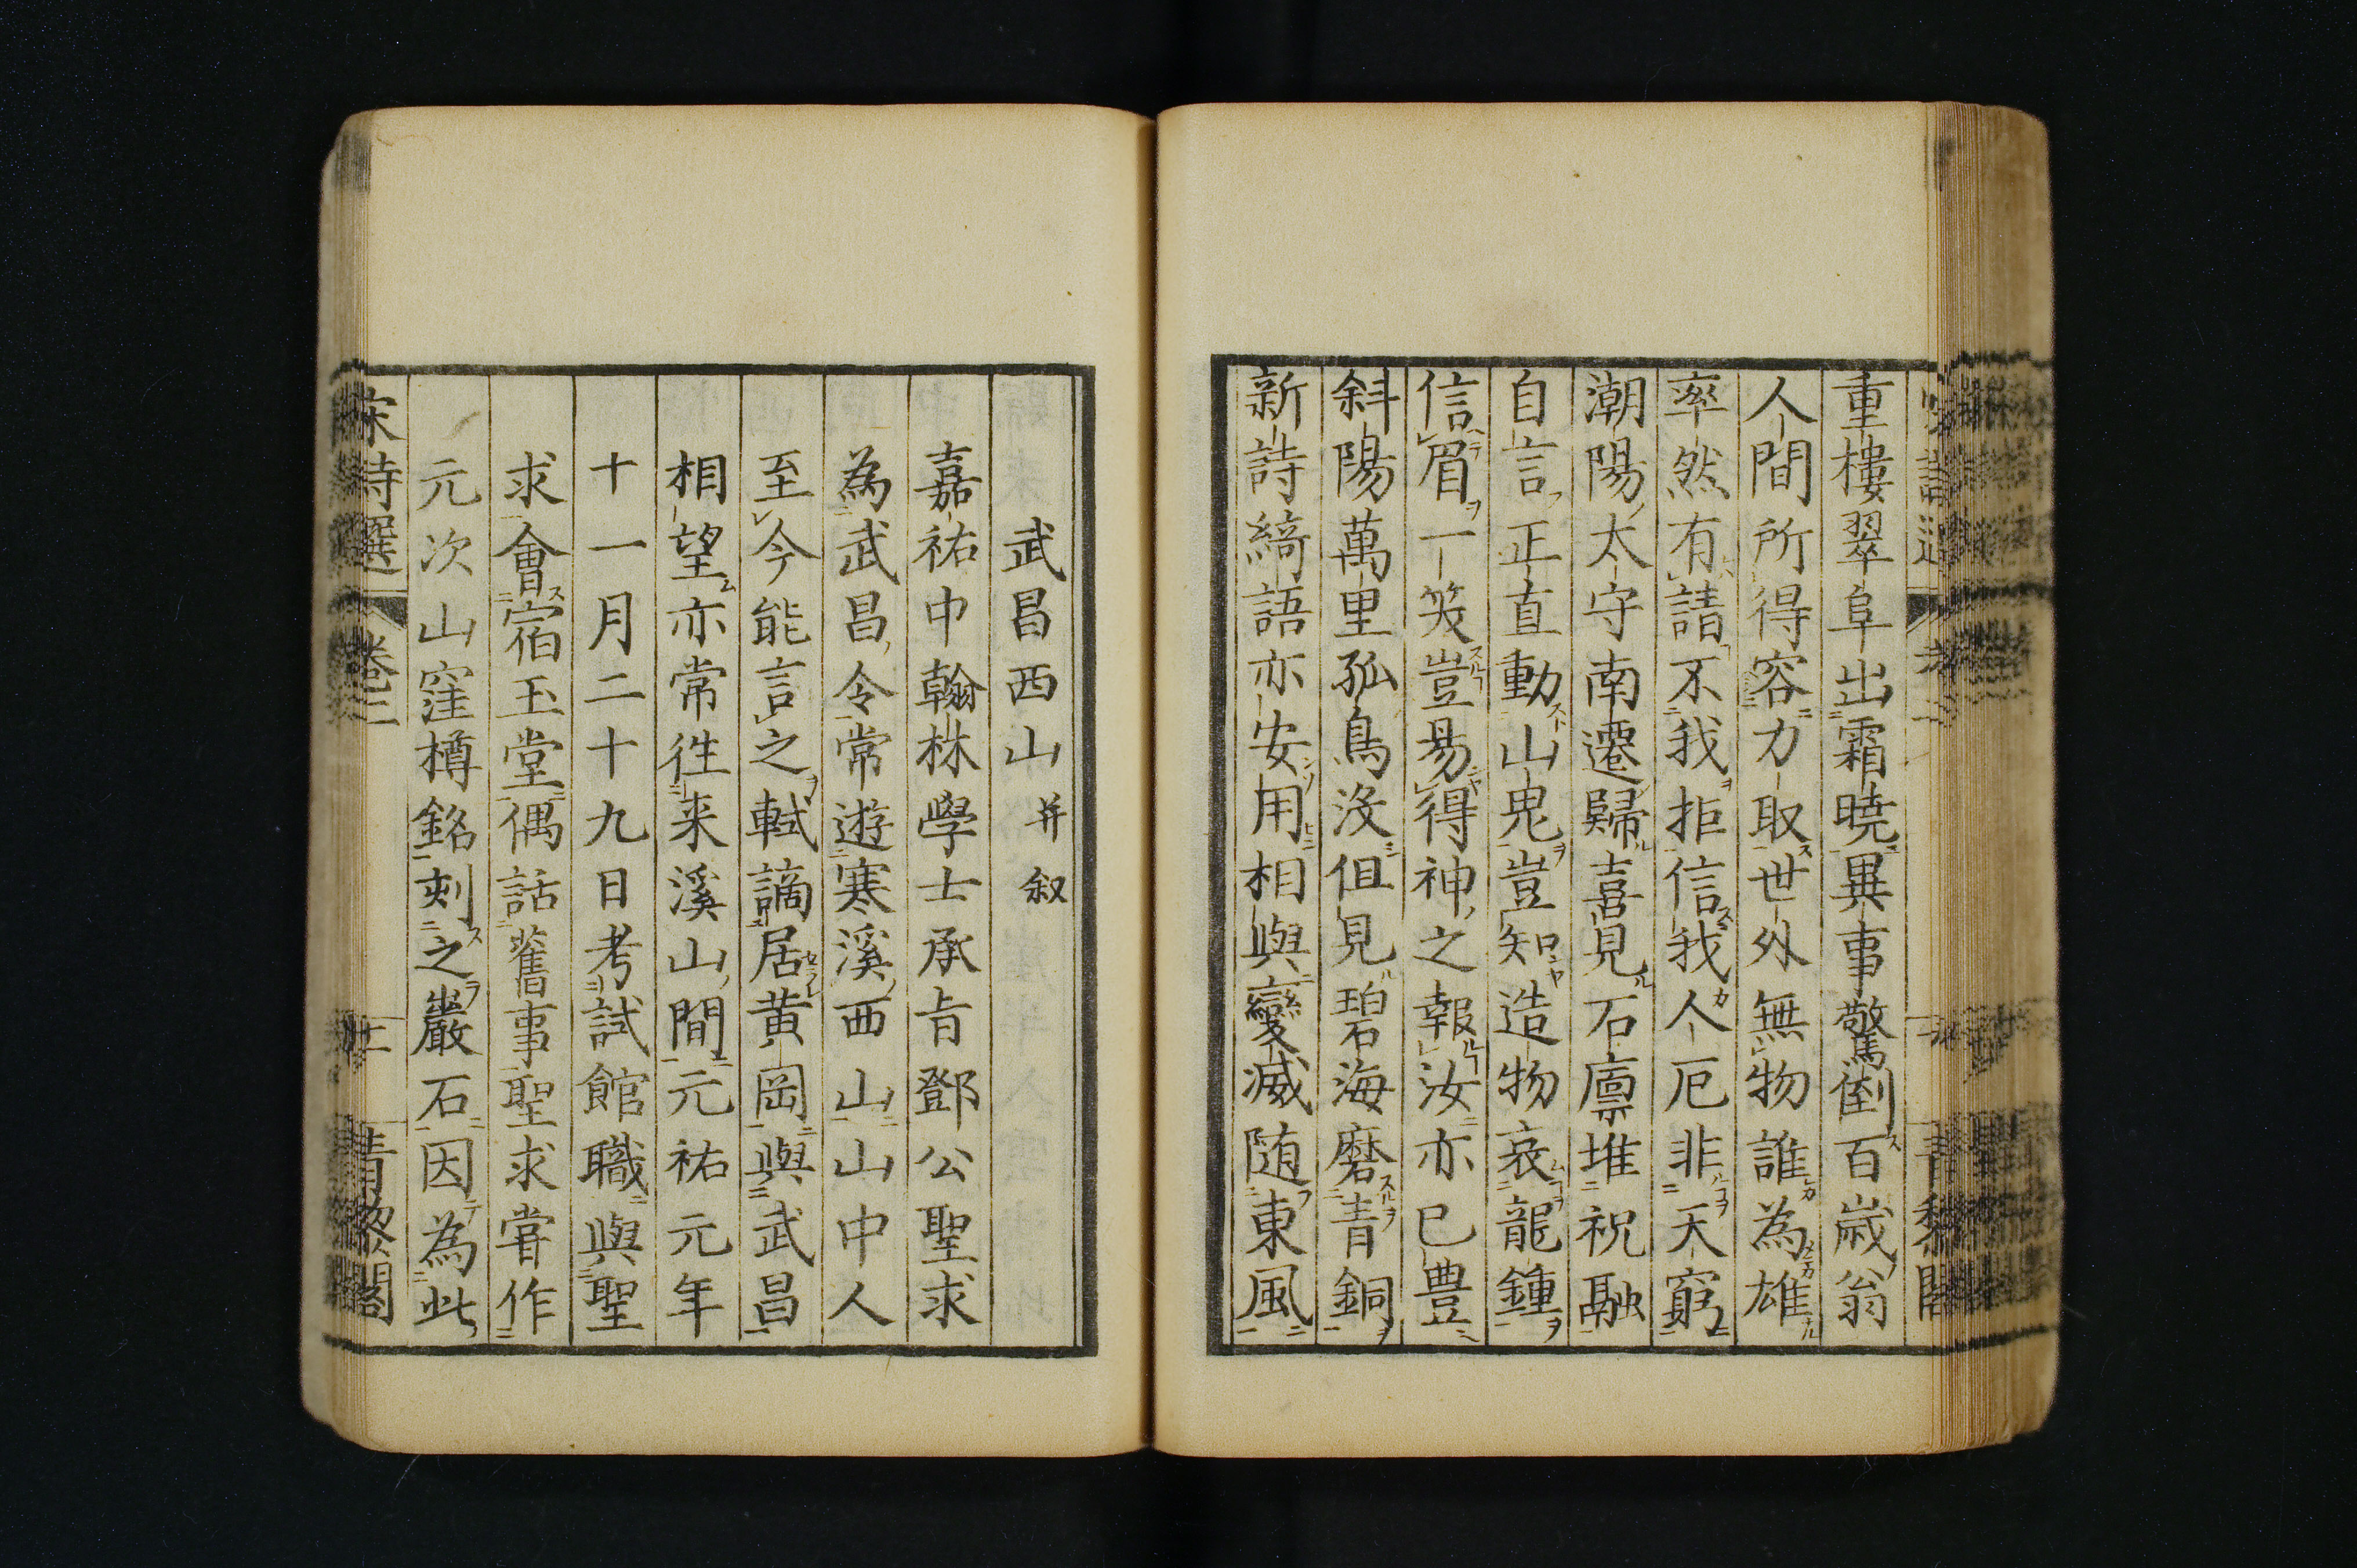 重樓翠阜出霜曉異事驚倒百歲翁
人間所得容力取世外無物誰為雄
率然有請不我拒信我人厄非天窮
潮陽太守南遷歸喜見石廩堆祝融
自言正直動山鬼豈知造物哀龍鍾
信眉一笑豈易得神之報汝亦已豊
斜陽萬里孤鳥没但見碧海磨青銅
新詩綺語亦安用相與變滅随東風
武昌西山并叙
嘉祐中翰林學士承旨鄧公聖求
為武昌令常遊寒溪西山山中人
至今能言之軾謫居黄岡與武昌
相望亦常往来溪山間元祐元年
十一月二十九日考試館職與聖
求會宿玉堂偶話舊事聖求嘗作
元次山窪樽銘刻之巖石因為此
宋詩選 卷三 青藜閣